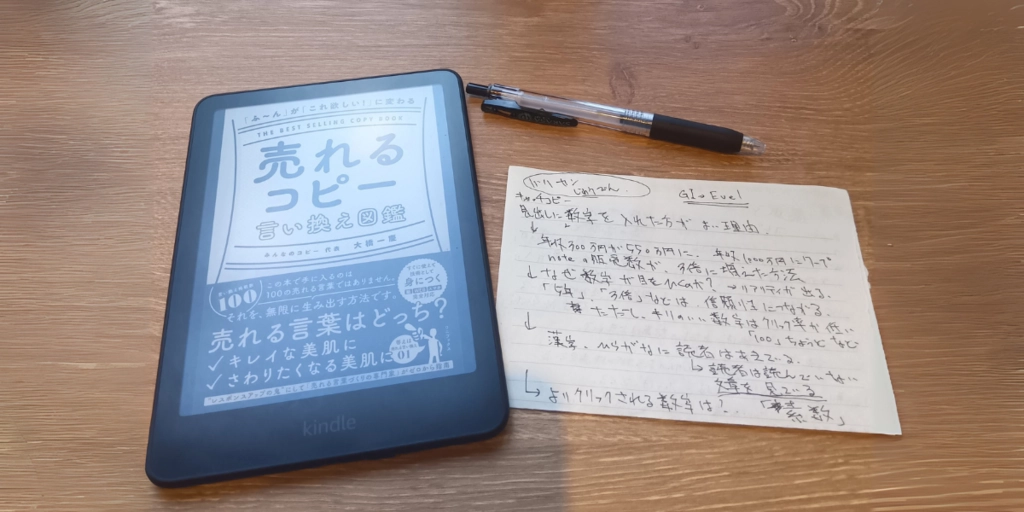 「ふーん」が「これ欲しい!」に変わる
THE BEST SELLING COPY BOOK
売れる
コピー
言い換え図鑑
みんなのコピー 代表 大橋一慶
この本で手に入るのは
100の売れる言葉ではありません。
それを、無限に生み出す方法です。
100
身につく
売れる言葉はどっち?
✓キレイな美肌に
✓さわりたくなる美肌に
01
kindle
キャッチコピー
見出しに数字を入れた方がよい理由
↓ 年収300万円が550万円に、年収1000万円にワープ
noteの販売数が、3倍に増えた方法
↓ なぜ数字が目をひくのか? → リアリティが出る。
「5万」、「3倍」などは信頼性につながる。
ただし、キリのいい数字はクリック率が低い
「100」ちょうどなど
↓ 漢字、ひらがなに読者は
↳ 読者は読んでいない
文章を見ている
↳ よりクリックされる数字は? 「素数」